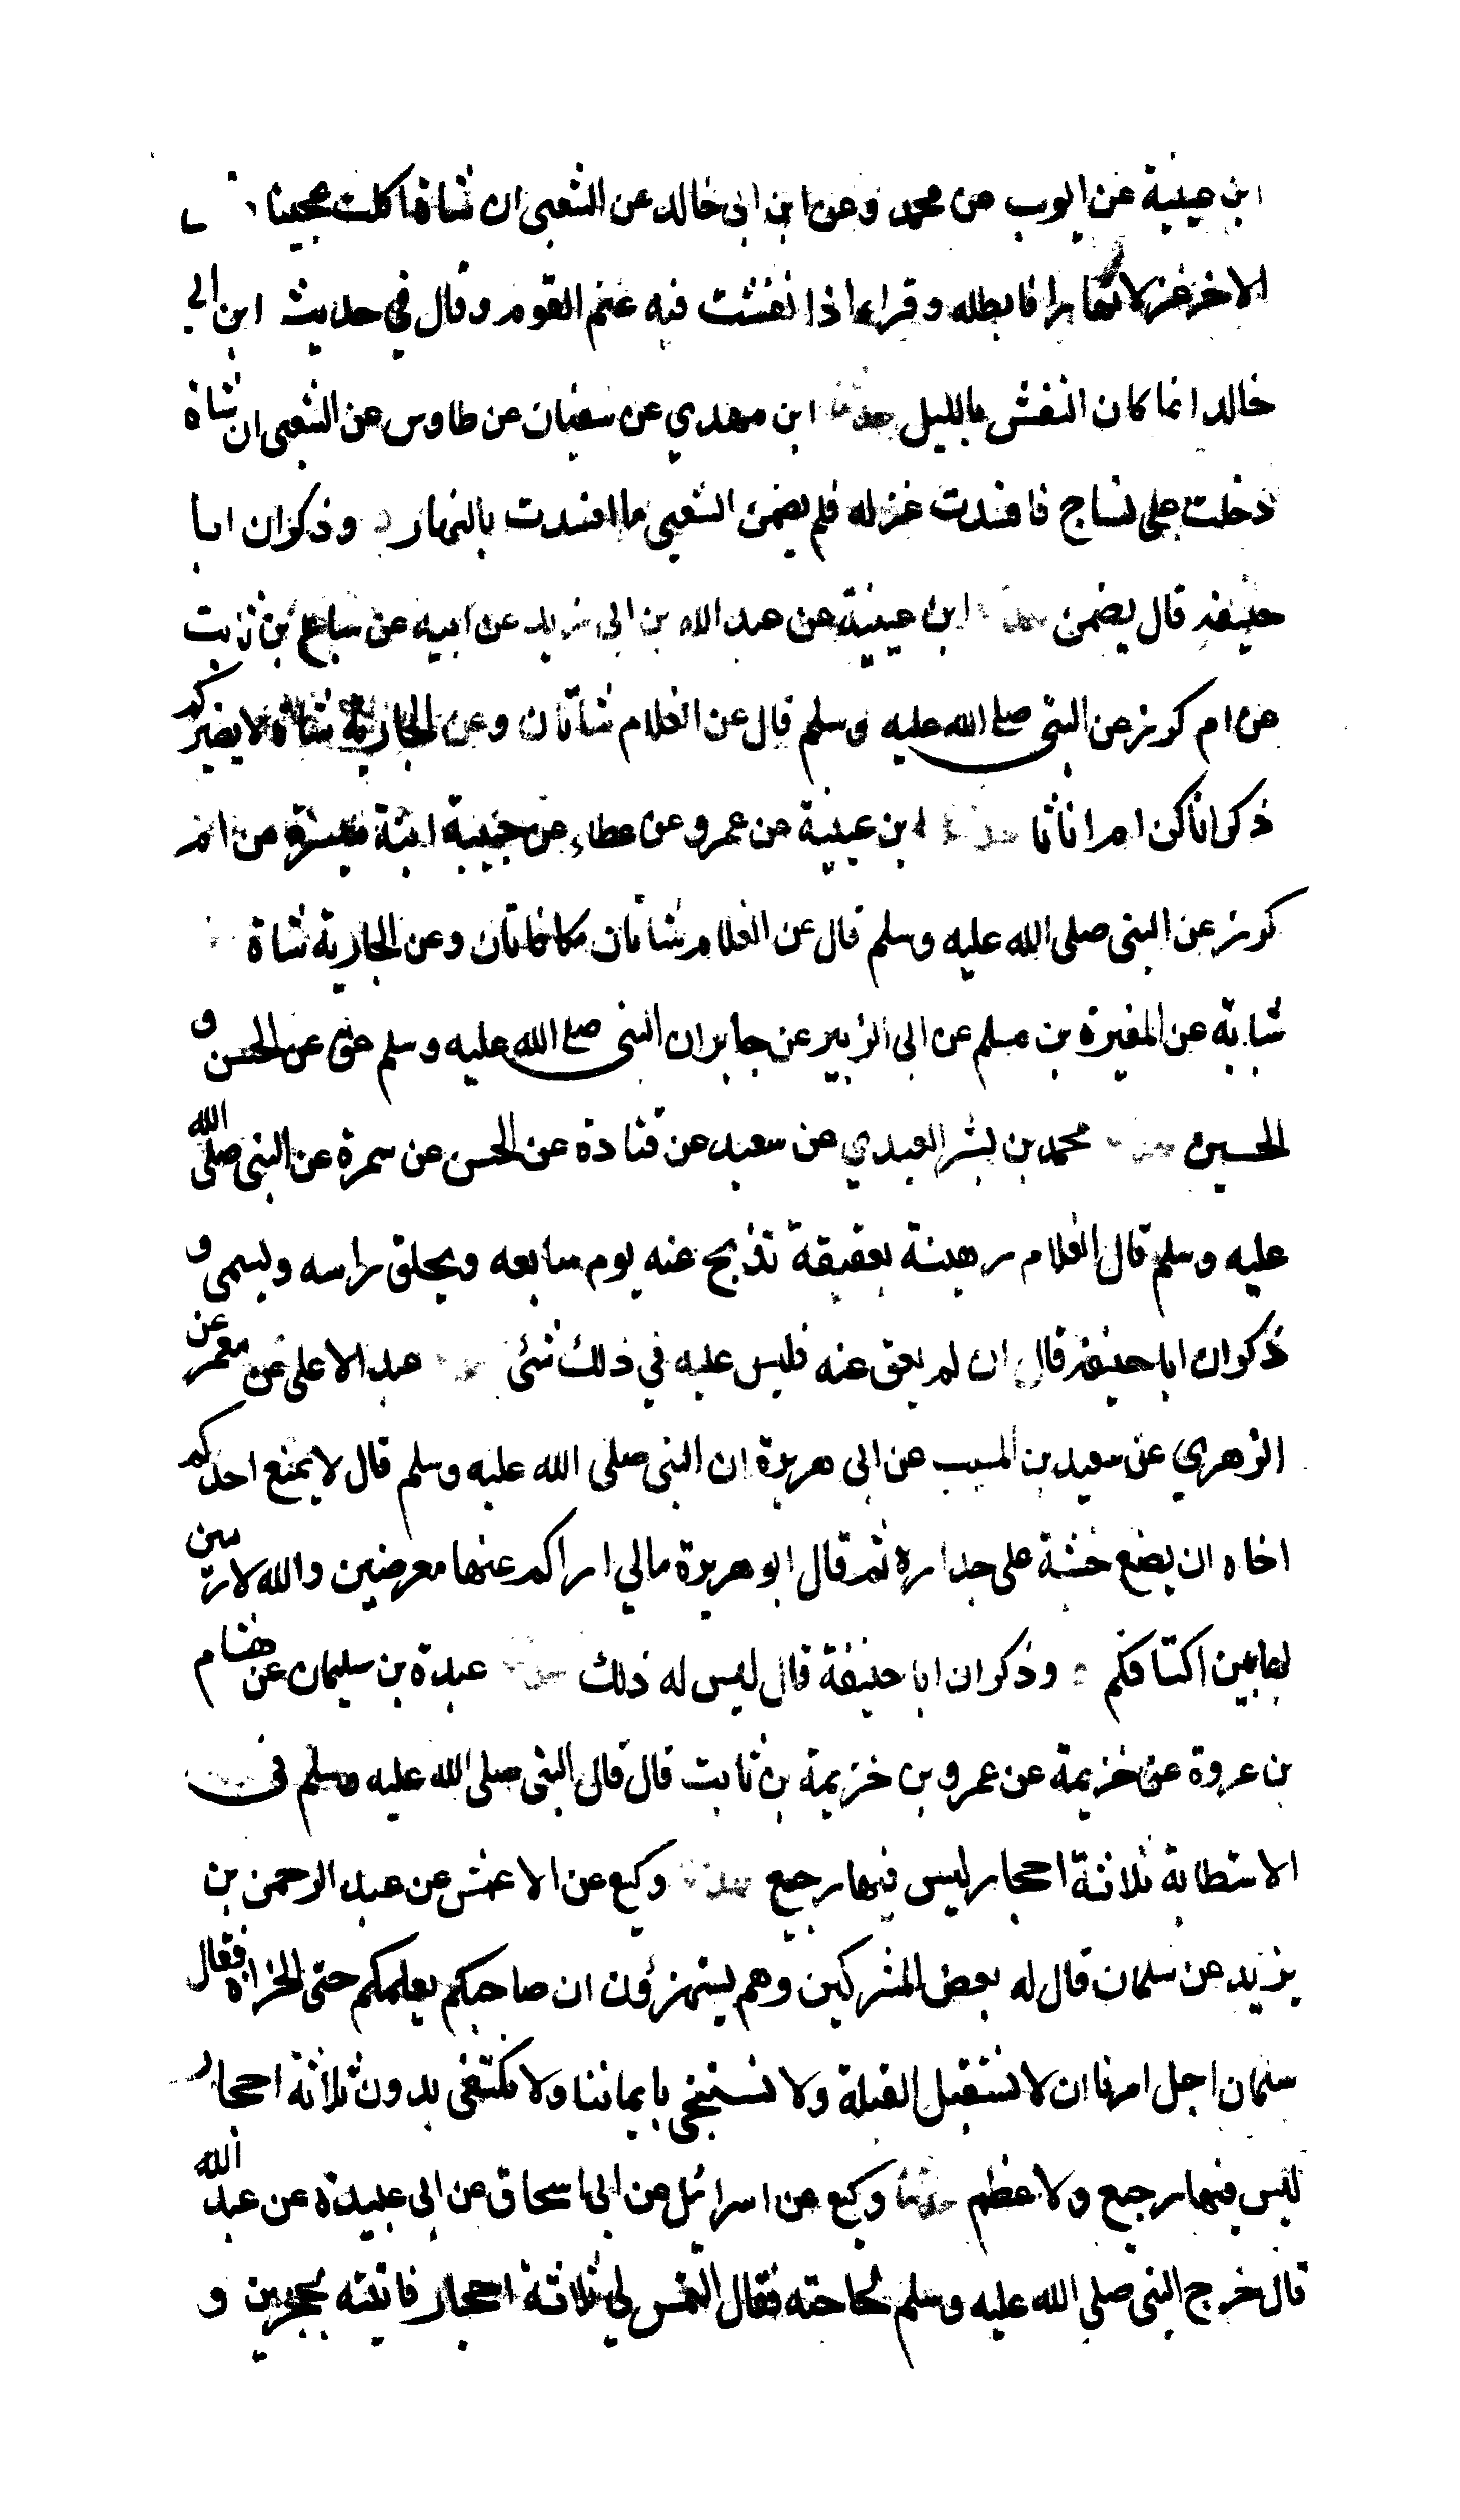 ابن عيينة عن ايوب عن محمد وعن ابن ابى خالد عن الشعبى ان شاة اكلت عجينا
الاخر غزلا نهارا فابطله وقرا اذا نفشت فيه غنم القوم وقال في حديث ابن ابي
خالد انما كان النفش بالليل حدثنا ابن مهدي عن سفيان عن طاوس عن الشعبى ان شاة
دخلت على نساج فافسدت غزله فلم يضمن الشعبى ما افسدت بالنهار وذكر ان ابا
حنيفة قال يضمن حدثنا ابن عيينة عن عبد الله بن ابى يزيد عن ابيه عن سباع بن ثابت
عن ام كرز عن النبى صلى الله عليه وسلم قال عن الغلام شاتان وعن الجارية شاة لا يضركم
ذكرانا كن ام اناثا حدثنا ابن عيينة عن عمرو عن عطاء عن حبيبة ابنة ميسرة عن ام
كرز عن النبى صلى الله عليه وسلم قال عن الغلام شاتان مكافاتان وعن الجارية شاة
شبابة عن المغيرة بن مسلم عن ابى الزبير عن جابر ان النبى صلى الله عليه وسلم عق عن الحسن و
الحسين حدثنا محمد بن بشر العبدي عن سعيد عن قتادة عن الحسن عن سمرة عن النبى صلى الله
عليه وسلم قال الغلام رهينة بعقيقة تذبح عنه يوم سابعه ويحلق راسه ويسمى و
ذكر ان ابا حنيفة قال ان لم يعق عنه فليس عليه في ذلك شئ حدثنا عبد الاعلى عن معمر عن
الزهري عن سعيد بن المسيب عن ابى هريرة ان النبى صلى الله عليه وسلم قال لا يمنع احدكم
اخاه ان يضع خشبة على جداره ثم قال ابو هريرة مالي اراكم عنها معرضين والله لارمين
بها بين اكتافكم وذكر ان ابا حنيفة قال ليس له ذلك حدثنا عبدة بن سليمان عن هشام
بن عروة عن خزيمة عن عمرو بن خزيمة بن ثابت قال قال النبى صلى الله عليه وسلم فى
الاستطابة ثلاثة احجار ليس فيها رجيع حدثنا وكيع عن الاعمش عن عبد الرحمن بن
يزيد عن سلمان قال له بعض المشركين وهم يستهزؤن ان صاحبكم يعلمكم حتى الخراة فقال
سلمان اجل امرنا ان لا نستقبل القبلة ولا نستنجى بايماننا ولا نكتفى بدون ثلاثة احجار
ليس فيها رجيع ولا عظم حدثنا وكيع عن اسرائيل عن ابى اسحاق عن ابى عبيدة عن عبد الله
قال خرج النبى صلى الله عليه وسلم لحاجته فقال التمس لي ثلاثة احجار فاتيته بحجرين و